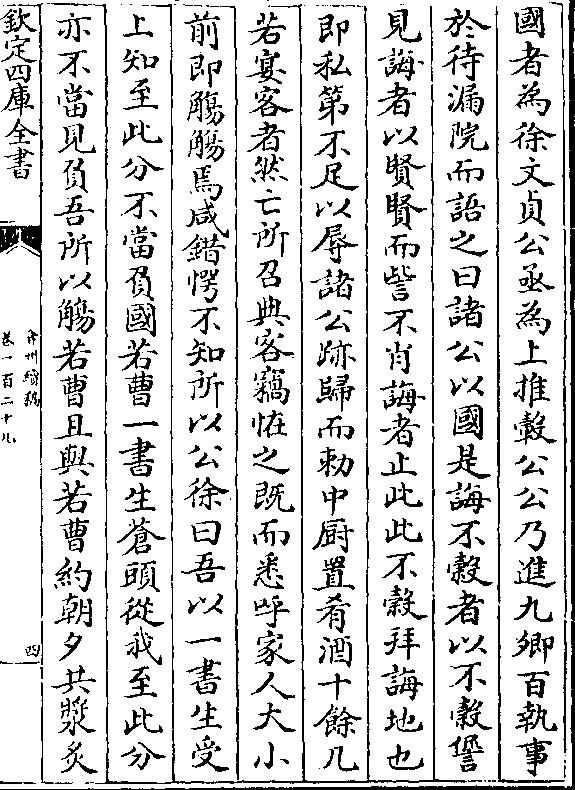 國者為徐文貞公亟為上推轂公公乃進九卿百執事
於待漏院而語之曰諸公以國是誨不穀者以不穀僿
見誨者以賢賢而訾不肖誨者止此此不穀拜誨地也
即私第不足以辱諸公跡歸而勅中厨置肴酒十餘几
若宴客者然亡所召典客竊怪之既而悉呼家人大小
前即觴觴焉咸錯愕不知所以公徐曰吾以一書生受
上知至此分不當負國若曹一書生蒼頭從我至此分
亦不當見負吾所以觴若曹且與若曹約朝夕共漿炙
欽定四庫全書
弇州續稿
卷一百二十九
四